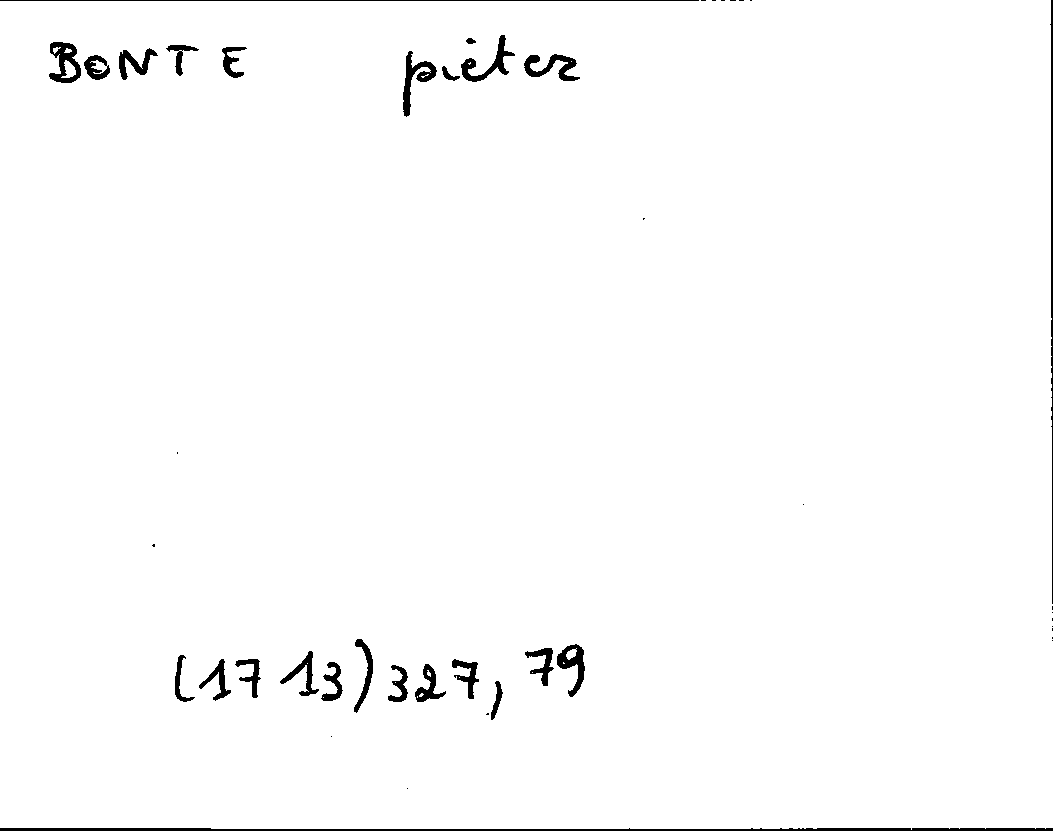 BONTE pieter
(1713) 327, 79